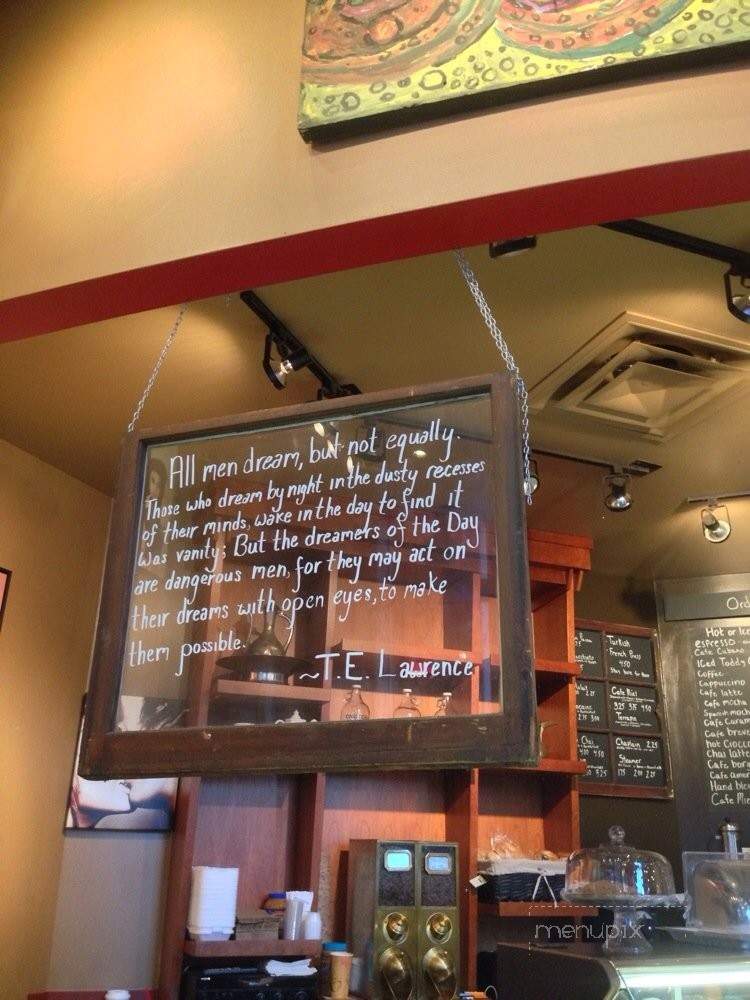 All men dream, but not equally.
Those who dream by night in the dusty recesses
of their minds, wake in the day to find it
was vanity; But the dreamers of the Day
are dangerous men, for they may act on
their dreams with open eyes, to make
them possible.
~T.E. Lawrence
Turkish
French Press
4.50
Cafe Riel
3.25 3.75 4.50
Chai
Charlain 2.25
Steamer
1.75 2.00 2.25
Hot or Iced
espresso
Cafe Cubano
Iced Toddy
Coffee
Cappuccino
Cafe latte
Cafe mocha
Spanish mocha
Cafe Caram
Cafe breve
hot Cocoa
Chai latte
Cafe bor
Cafe amer
Hand ble
Cafe Mie
menupix